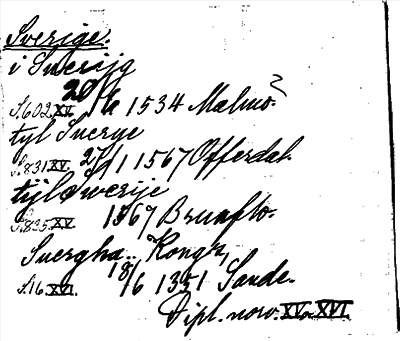 Sverige.
i Suerijg
S.602.XV. 20/6 1534 Malmö?
tyl Suerye
S.831.XV. 27/1 1567 Offerdal.
tijl Swerije
S.835.XV 1567 Brunflo.
Suergha.. Kong's,
S.16.XVI. 18/6 1351 Sande.
Dipl. norv. XV o. XVI.